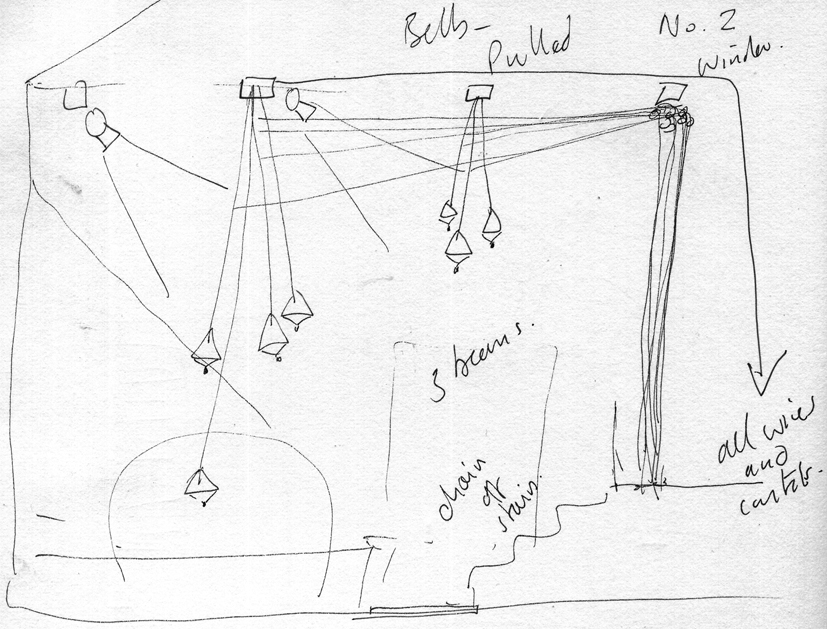 Bells –
Pulled
No. 2
window.
3 beams.
chain
off
stairs.
all wires
and
controls.